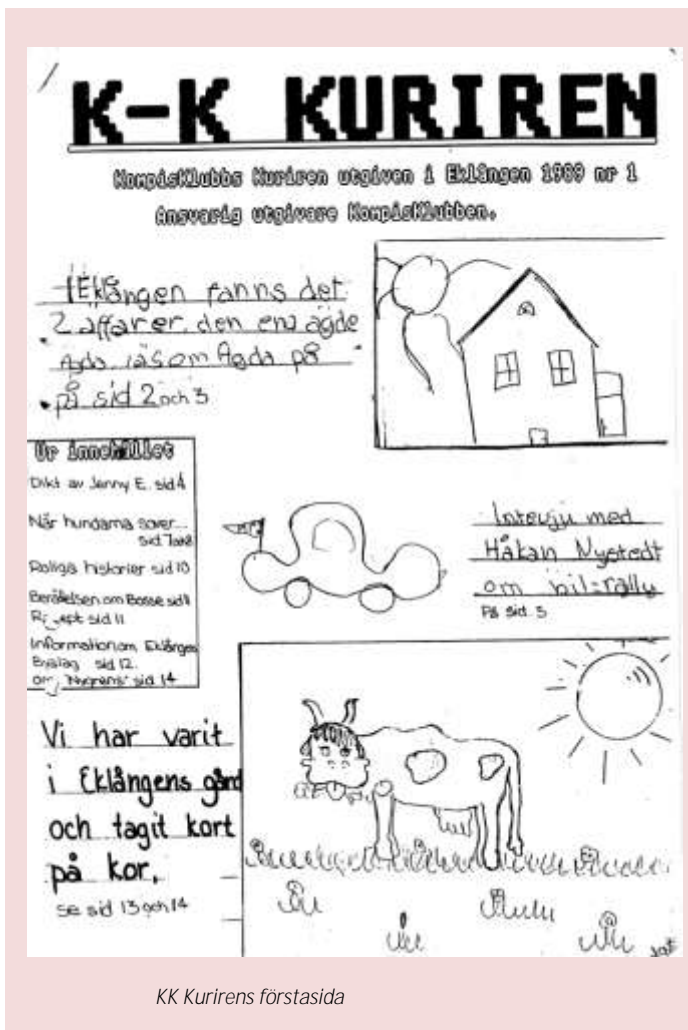 K-K KURIREN
KompisKlubbs Kuriren utgiven i Eklången 1989 nr 1
Ansvarig utgivare KompisKlubben.
I Eklången fanns det
2 affärer, den ena ägde
Agda läs om Agda på
på sid 2 och 3
Ur innehållet
Dikt av Jenny E. sid 4
När hundarna sover...
sid 7 och 8
Roliga historier sid 10
Berättelsen om Bosse sid 11
sid 11
Information om Eklångens
Byalag sid 12.
om "Nygrens" sid 14
Intevju med
Håkan Nystedt
om bil=rally
På sid. 5
Vi har varit
i Eklångens gård
och tagit kort
på kor.
se sid 13 och 14
KK Kurirens förstasida